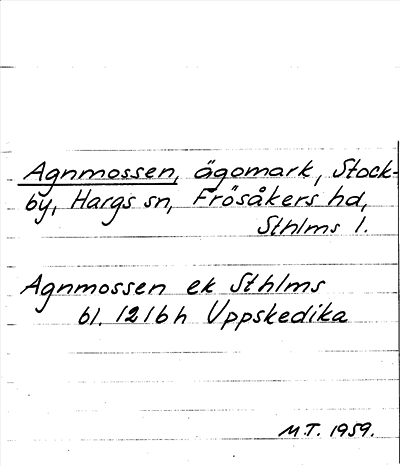 Agnmossen, ägomark, Stock-
by, Hargs sn, Frösåkers hd,
Sthlms l.
Agnmossen ek Sthlms
bl. 121bh Uppskedika
M.T. 1959.